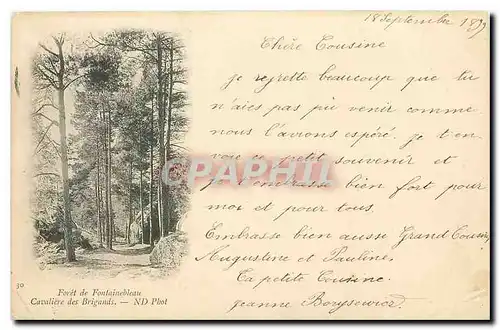 18 September 1899
Chère Cousine
je regrette beaucoup que tu
n'aies pas pû venir comme
nous l'avions espéré. je t'en
voie ce petit souvenir et
je t'embrasse bien fort pour
moi et pour tous.
Embrasse bien aussi Grand Cousin
Augustine et Pauline.
Ta petite Cousine.
Jeanne
CPAPHIL
30
Forêt de Fontainebleau
Cavalière des Brigands. — ND Phot